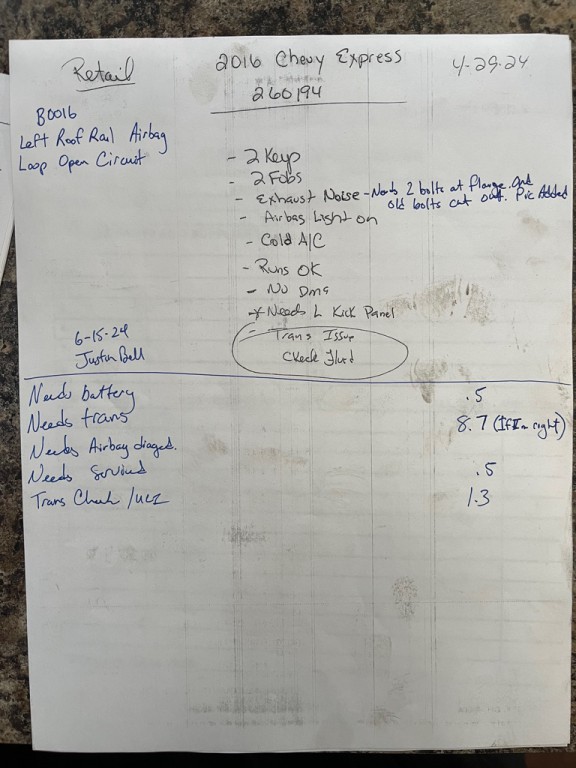 Retail
2016 Chevy Express
4-29-24
260194
B0016
Left Roof Rail Airbag
Loop Open Circuit
- 2 Keys
- 2 Fobs
- Exhaust Noise - Needs 2 bolts at flange and
old bolts cut out. Pic Added
- Airbag Light on
- Cold A/C
- Runs OK
- No Dmg
* Needs L Kick Panel
- Trans Issue
Check Fluid
6-15-24
Justin Bell
Needs battery .5
Needs trans 8.7 (If I'm right)
Needs Airbag diaged.
Needs Serviced .5
Trans Check 1.3